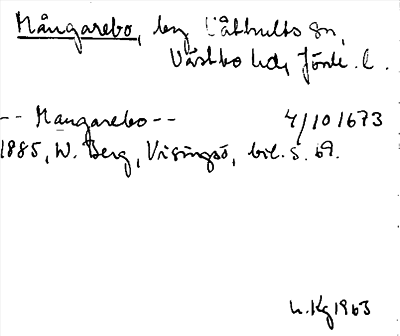 Mångarebo, by Våthults sn,
Västbo hd, Jönk. l.
-- Mangarebo -- 4/10 1673
1885, W. Berg, Visingsö, bil. s. 69.
h. Kg 1963